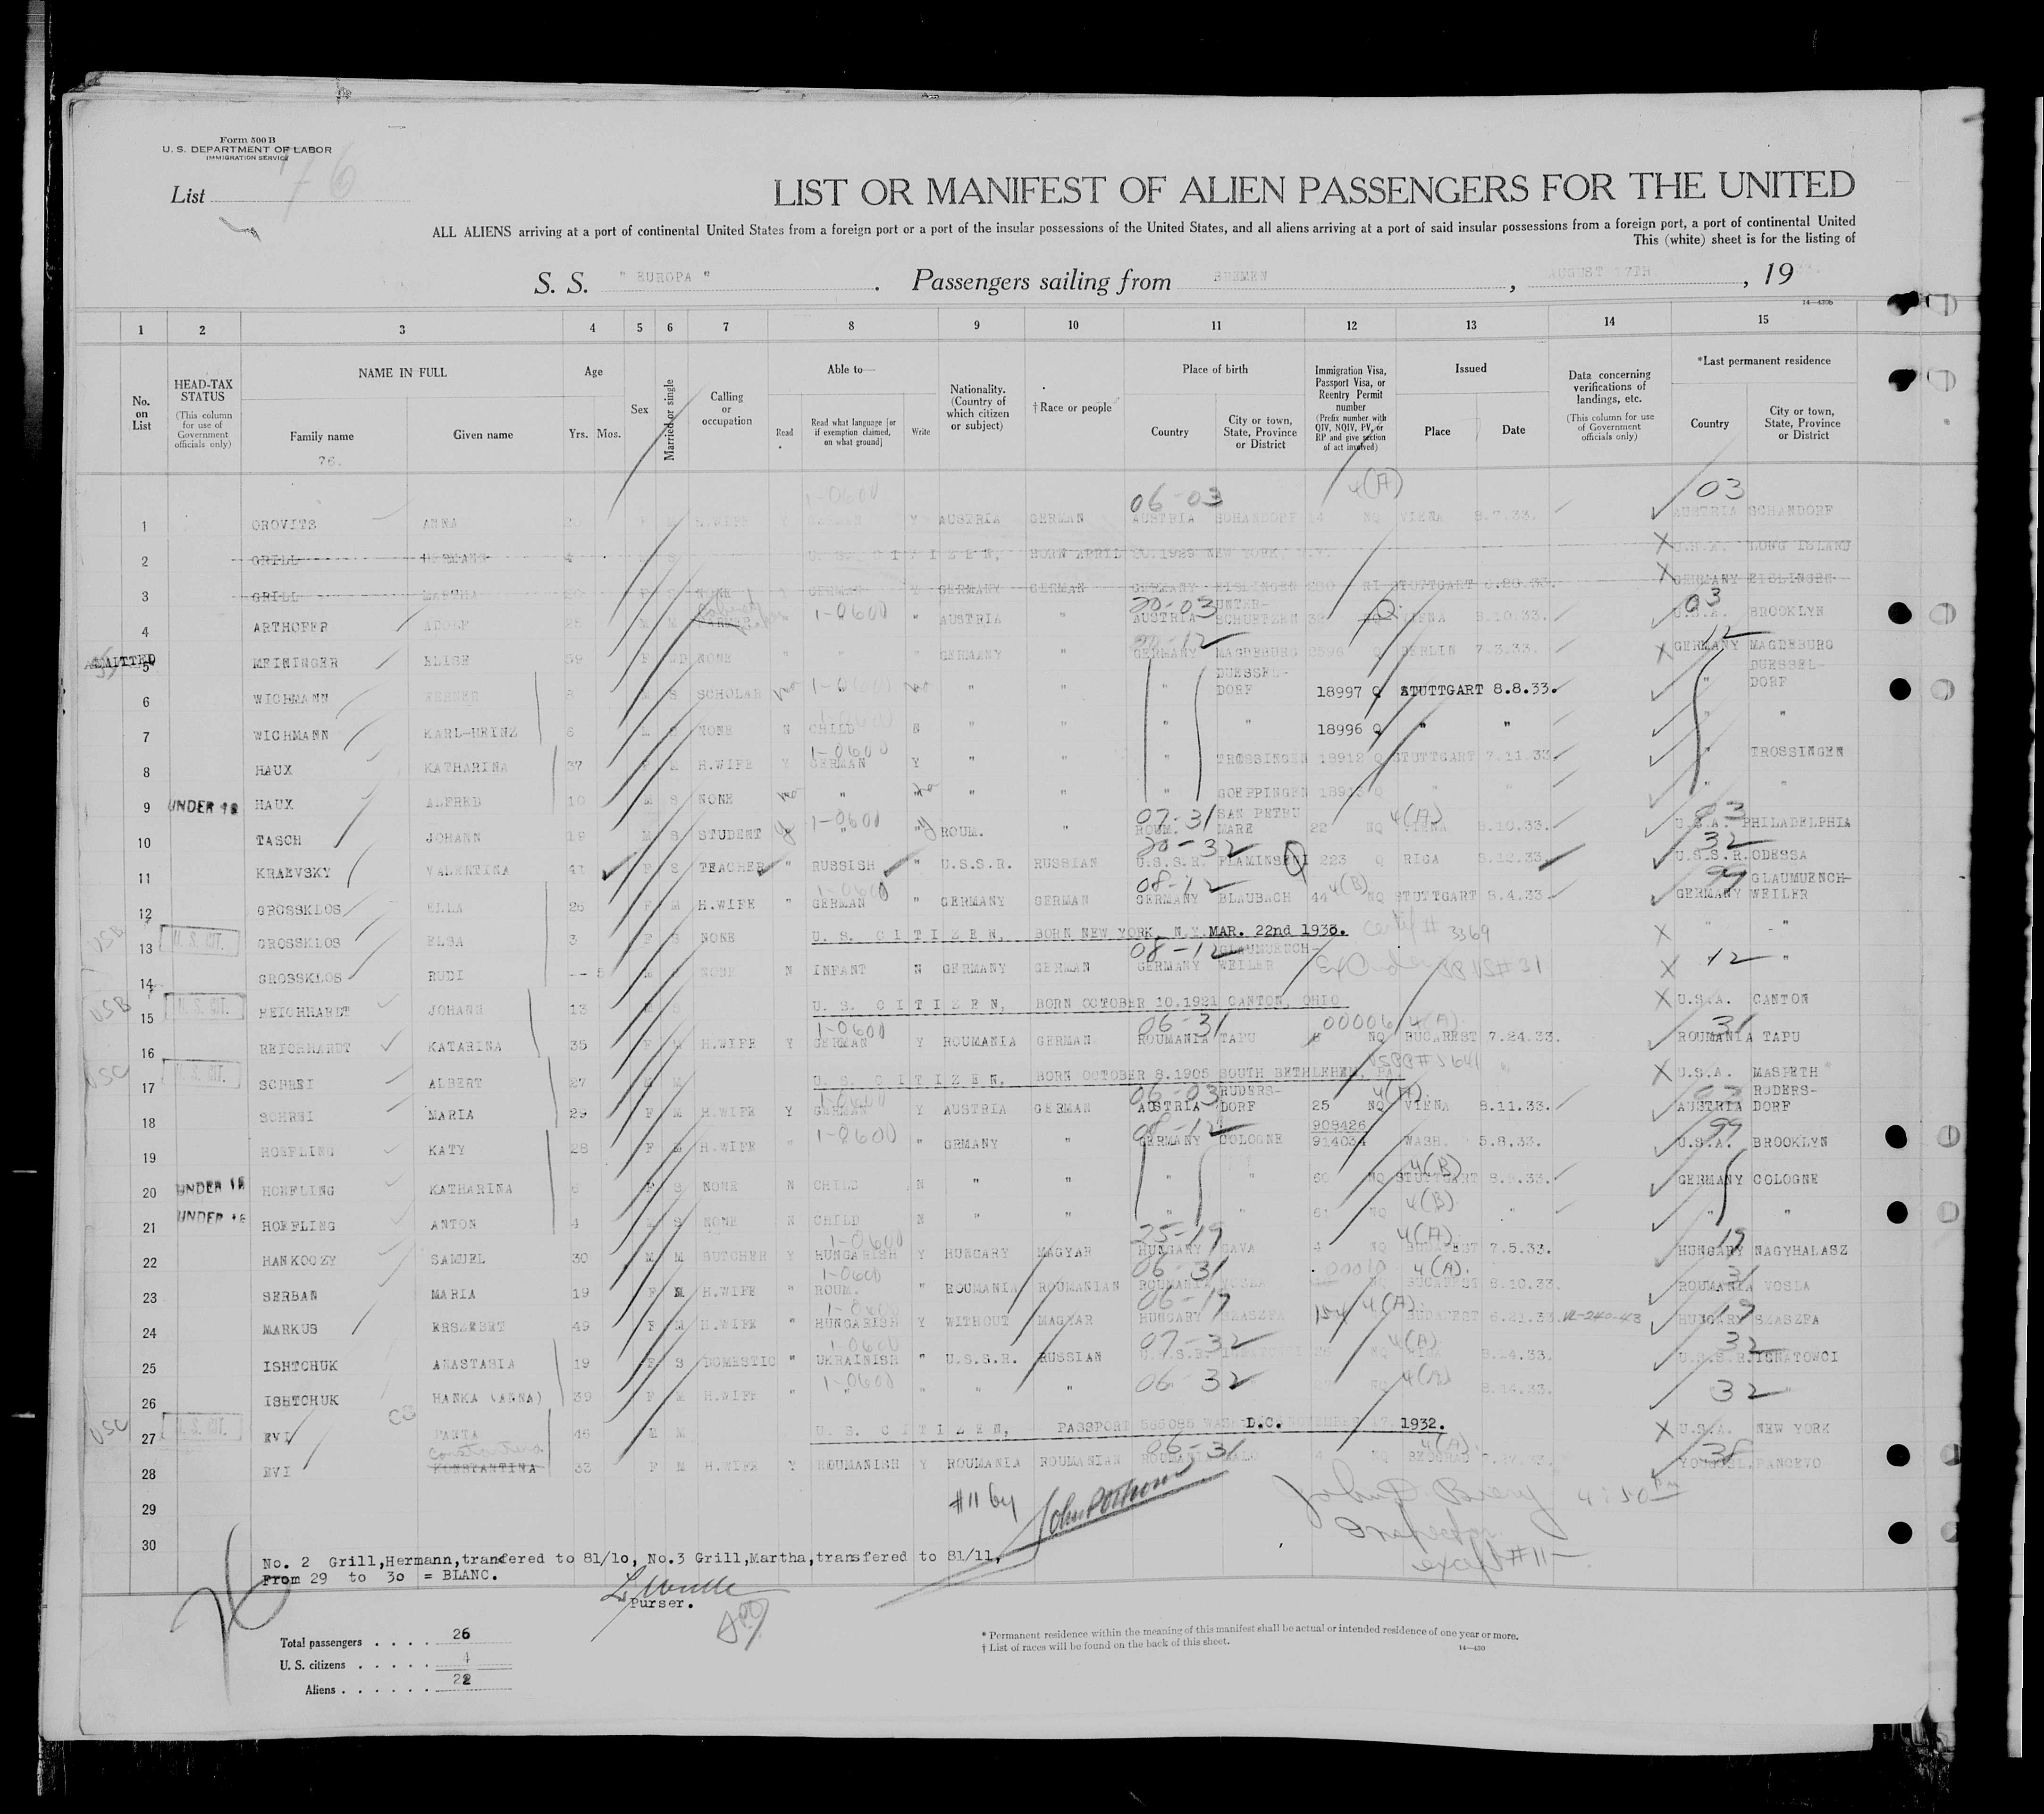 Form 500 B
U. S. DEPARTMENT OF LABOR
IMMIGRATION SERVICE
List 76
LIST OR MANIFEST OF ALIEN PASSENGERS FOR THE UNITED
ALL ALIENS arriving at a port of continental United States from a foreign port or a port of the insular possessions of the United States, and all aliens arriving at a port of said insular possessions from a foreign port, a port of continental United
This (white) sheet is for the listing of
S. S. " EUROPA " . Passengers sailing from BREMEN , AUGUST 17TH , 19 33.
14—430b
1 2 3 4 5 6 7 8 9 10 11 12 13 14 15
No. on List
HEAD-TAX STATUS (This column for use of Government officials only)
NAME IN FULL Family name Given name
76.
Age Yrs. Mos.
Sex
Married or single
Calling or occupation
Able to— Read Read what language [or if exemption claimed, on what ground] Write
Nationality. (Country of which citizen or subject)
† Race or people
Place of birth Country City or town, State, Province or District
Immigration Visa, Passport Visa, or Reentry Permit number (Prefix number with QIV, NQIV, PV, or RP and give section of act involved)
Issued Place Date
Data concerning verifications of landings, etc. (This column for use of Government officials only)
*Last permanent residence Country City or town, State, Province or District
1-0600 06-03 4(A) 03
1 OROVITS ANNA F M H.WIFE Y GERMAN Y AUSTRIA GERMAN AUSTRIA SCHANDORF 14 NQ VIENA 8.7.33. AUSTRIA SCHANDORF
2 GRILL HERMANN 4 M S U. S. CITIZEN, BORN APRIL 20.1929 NEW YORK, N.Y. U.S.A. LONG ISLAND
3 GRILL MARTHA F S NONE GERMAN Y GERMANY GERMAN GERMANY EISLINGEN STUTTGART GERMANY EISLINGEN
1-0600 20-03 Q 03
4 ARTHOFER ADOLF 25 M M " AUSTRIA " AUSTRIA UNTER-SCHUETZEN VIENA 8.10.33. U.S.A. BROOKLYN
20-12 12
ADMITTED 5 MEININGER ELISE 59 F WD NONE " " " GERMANY " GERMANY MAGDEBURG 2596 Q BERLIN 7.3.33. GERMANY MAGDEBURG
6 WICHMANN WERNER 8 M S SCHOLAR no 1-0600 no " " " DUESSEL-DORF 18997 Q STUTTGART 8.8.33. " DUESSEL-DORF
7 WICHMANN KARL-HEINZ 6 M S NONE N CHILD N " " " " 18996 Q " " " "
1-0600
8 HAUX KATHARINA 37 F M H.WIFE Y GERMAN Y " " " TROSSINGEN 18912 Q STUTTGART 7.11.33. " TROSSINGEN
9 UNDER 16 HAUX ALFRED 10 M S NONE no " no " " " GOEPPINGEN 18913 Q " " " "
1-0600 07-31 4(A) 03
10 TASCH JOHANN 19 M S STUDENT y " " y ROUM. " ROUM. SAN PETRU MARE 22 NQ VIENA 8.10.33. U.S.A. PHILADELPHIA
20-32 Q 32
11 KRAEVSKY VALENTINA 41 F S TEACHER " RUSSISH " U.S.S.R. RUSSIAN U.S.S.R. 223 Q RIGA 8.12.33. U.S.S.R. ODESSA
1-0600 08-12 4(B) 99
12 GROSSKLOS ELLA 26 F M H.WIFE " GERMAN " GERMANY GERMAN GERMANY BLAUBACH 44 NQ STUTTGART 8.4.33. GERMANY GLAUMUENCH-WEILER
USB U. S. CIT. 13 GROSSKLOS ELSA 3 F S NONE U. S. CITIZEN, BORN NEW YORK, N.Y. MAR. 22nd 1930. Certif # 3369 " "
08-12 12
14 GROSSKLOS RUDI -- 5 M S NONE N INFANT N GERMANY GERMAN GERMANY GLAUMUENCH-WEILER "
USB U. S. CIT. 15 REICHHARDT JOHANN 13 M S U. S. CITIZEN, BORN OCTOBER 10.1921 CANTON, OHIO U.S.A. CANTON
1-0600 06-31 00006 4(A) 31
16 REICHHARDT KATARINA 35 F M H.WIFE Y GERMAN Y ROUMANIA GERMAN ROUMANIA TAPU NQ BUCAREST 7.24.33. ROUMANIA TAPU
USC U. S. CIT. 17 SCHREI ALBERT 27 M M U. S. CITIZEN, BORN OCTOBER 8.1905 SOUTH BETHLEHEM, PA. U.S.A. MASPETH
1-0600 06-03 4(A). 03
18 SCHREI MARIA 29 F M H.WIFE Y GERMAN Y AUSTRIA GERMAN AUSTRIA RUDERS-DORF 25 NQ VIENA 8.11.33. AUSTRIA RUDERS-DORF
1-0600 08-12 909426 99
19 HOEFLING KATY 28 F M H.WIFE " " GRMANY " GERMANY COLOGNE 914034 WASH. 5.8.33. U.S.A. BROOKLYN
4(B)
20 UNDER 16 HOEFLING KATHARINA 6 F S NONE N CHILD N " " " " 60 NQ STUTTGART GERMANY COLOGNE
4(B)
21 UNDER 16 HOEFLING ANTON 4 M S NONE N CHILD N " " " " 61 NQ " " "
1-0600 25-19 4(A) 19
22 HANKOCZY SAMUEL 30 M M BUTCHER Y HUNGARISH Y HUNGARY MAGYAR HUNGARY 4 NQ BUDAPEST 7.5.33. HUNGARY NAGYHALASZ
1-0600 06-31 00010 4(A). 31
23 SERBAN MARIA 19 F M H.WIFE " ROUM. " ROUMANIA ROUMANIAN ROUMANIA VOSLA NQ BUCAREST 8.10.33. ROUMANIA VOSLA
1-0600 06-19 4(A) 19
24 MARKUS ERSZEBET 49 F M H.WIFE " HUNGARISH Y WITHOUT MAGYAR HUNGARY SZASZFA 154 BUDAPEST 6.21.33. HUNGARY SZASZFA
1-0600 07-32 4(A) 32
25 ISHTCHUK ANASTASIA 19 F S DOMESTIC " UKRAINISH " U.S.S.R. RUSSIAN U.S.S.R. NQ 8.14.33. U.S.S.R. IGNATOWCI
1-0600 06-32 4(A) 32
26 ISHTCHUK HANKA (ANNA) 39 F M H.WIFE " " " " " NQ 8.14.33. "
USC U. S. CIT. 27 EVI PANTA 46 M M U. S. CITIZEN, PASSPORT WASH. D.C. NOVEMBER 17. 1932. U.S.A. NEW YORK
06-31 4(A). 38
28 EVI KONSTANTINA 33 F M H.WIFE Y ROUMANISH Y ROUMANIA ROUMANIAN ROUMANIA 4 NQ BEOGRAD YOUGOSL. PANCEVO
29 #11 by
John D Barry 4:50 pm
30 Inspector
except #11—
No. 2 Grill,Hermann,transfered to 81/10, No.3 Grill,Martha,transfered to 81/11,
From 29 to 30 = BLANC.
Purser.
76
Total passengers . . . . 26
U. S. citizens . . . . . 4
Aliens . . . . . . . 22
* Permanent residence within the meaning of this manifest shall be actual or intended residence of one year or more.
† List of races will be found on the back of this sheet.
14—430